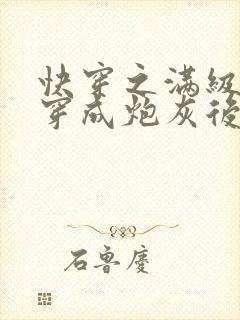 快穿之满級
穿成炮灰後
石鲁慶